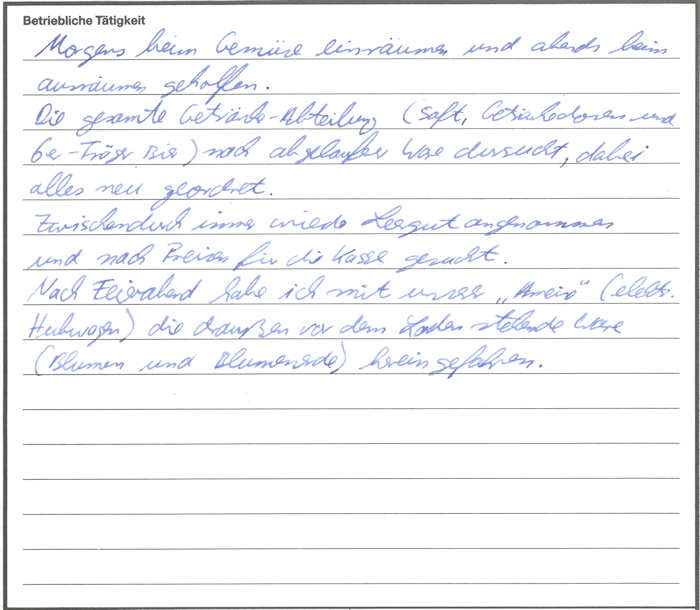 Betriebliche Tätigkeit
Morgens beim Gemüse einräumen und abends beim
ausräumen geholfen.
Die gesamte Getränke-Abteilung (Saft, Getränkedosen und
6er-Träger Bier) nach abgelaufener Ware dursucht, dabei
alles neu geordnet.
Zwischendurch immer wieder Leergut angenommen
und nach Preisen für die Kasse gesucht.
Nach Feierabend habe ich mit unserer „Ameise" (elektr.
Hubwagen) die draußen vor dem Laden stehende Ware
(Blumen und Blumenerde) herein gefahren.